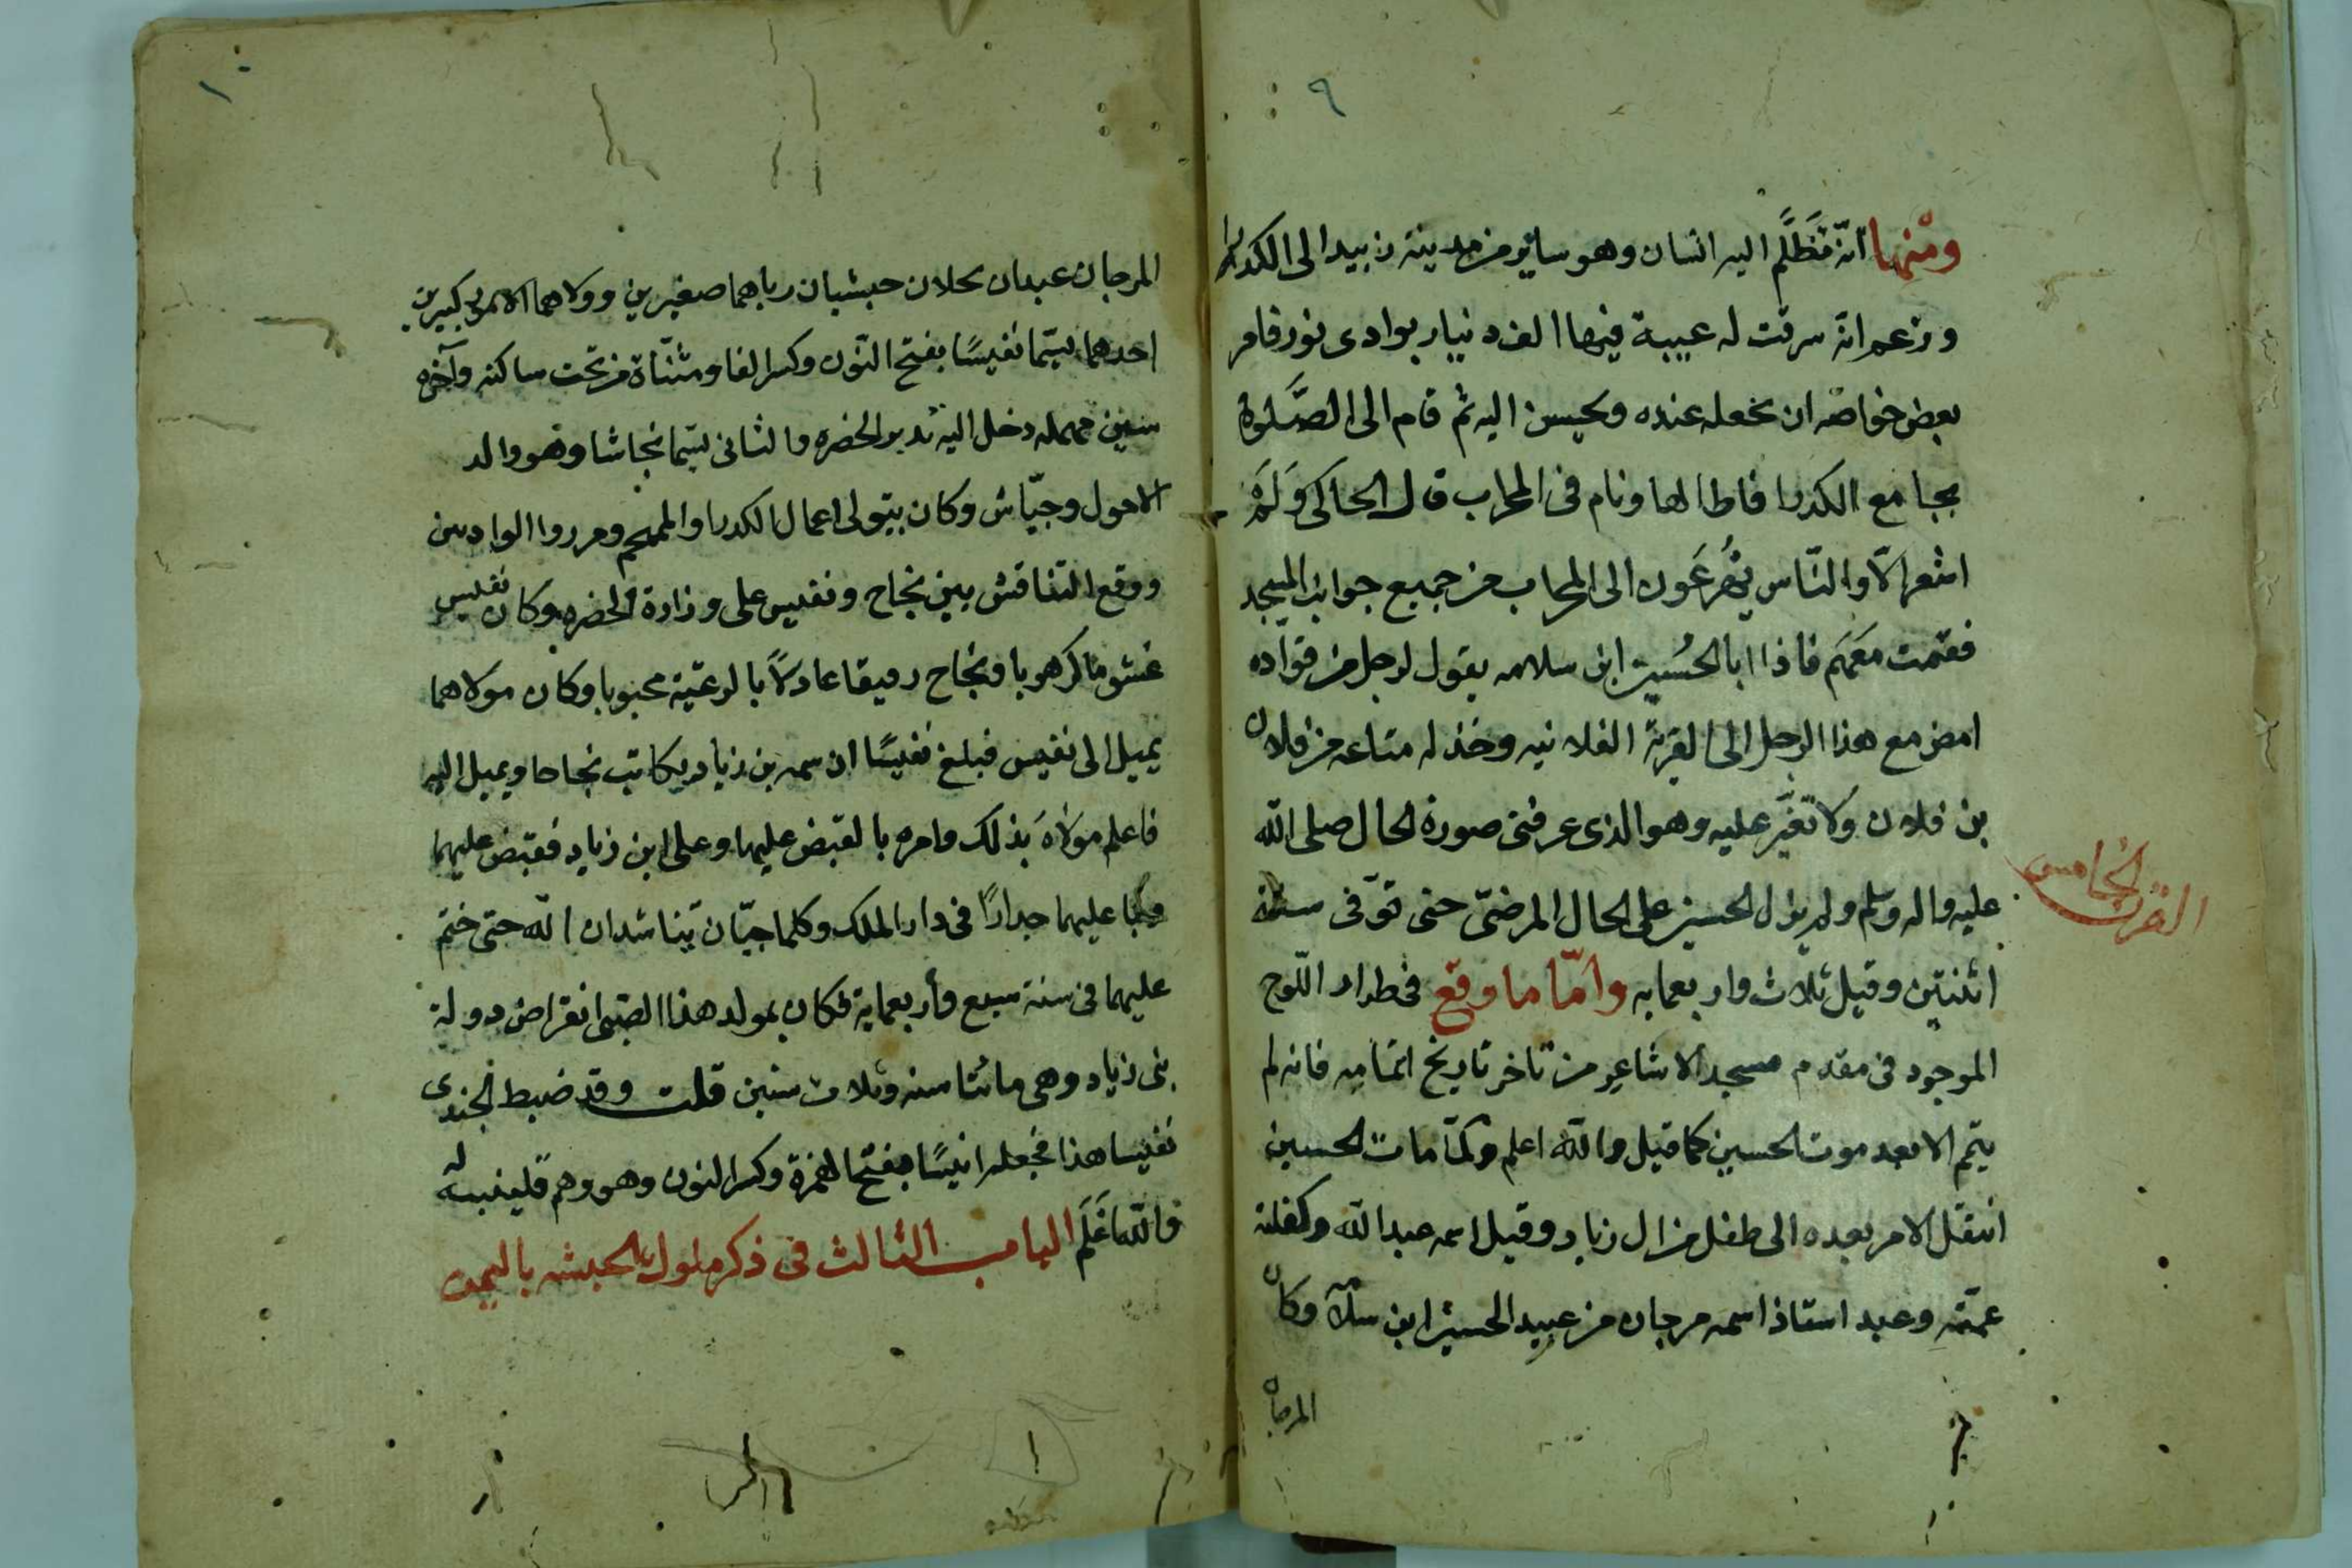 ٩
ومنها انّه تَظَلَّم اليه انسان وهو ساير من مدينة زبيد الى الكدرا
وزعم انّه سرقت له عيبة فيها الف دنيار بوادى نور فامر
بعض خواصّه ان يجعله عنده ويحسن اليه ثم قام الى الصَّلوة
بجامع الكدرا فاطالها ونام فى المحراب قال الحاكى وَلَمْ
اشعر الّا والنّاس يُهرَعُون الى المحراب من جميع جوانب المسجد
فقمت مَعَهَم فاذا ابا الحُسين ابن سلامه يقول لرجل من قواده
امض مع هذا الرجل الى القرية الفلانيه وخذ له متاعه من فلان
بن فلان ولا تغيّر عليه وهو الذى عرفنى صورة الحال صلى الله
عليه واله وسلم ولم يزل الحسين على الحال المرضىّ حتى توّفى سنة
القرن الخامس
اثنتين وقيل ثلاث واربعمايه وامّا ما وقع فى طراد اللّوح
الموجود فى مقدم مسجد الاشاعر من تاخر تاريخ اتمامه فانه لم
يتم الا بعد موت الحسين كما قيل والله اعلم ولمّا مات الحسين
انتقل الامر بعده الى طفل من ال زياد وقيل اسمه عبد الله وكفلته
عمّته وعبد استاذ اسمه مرجان من عبيد الحسين ابن سلامه وكان
المرجان
١٠
المرجان عبدان نحلان حبشيان رباهما صغيرين وولاهما الامر كبيرين
احدهما يسّما نفيسًا بفتح النّون وكسر الفا ومثنّاة من تحت ساكنه وآخره
سين مهمله دخل اليه تدبير الحضره والثانى يسّما نجاشا وهو والد
الاحول وجيّاش وكان يتولى اعمال الكدرا والمهجم ومور والواديين
ووقع التنافس بين نجاح ونفيس على وزارة الحضره وكان نفيس
غشوما كرهوبا ونجاح رفيقا عادلاً بالرعيّة محبوبا وكان مولاهما
يميل الى نفيس فبلغ نفيسًا ان سمه بن زياد يكاتب نجاحا ويميل اليه
فاعلم مولاهَ بذلك وامره بالقبض عليها وعلى ابن زياد فقبض عليهما
وبنا عليهما جدارًا فى دار الملك وكلما حيّان يّناشدان الله حتى ختم
عليهما فى سنة سبع وأربعماية فكان بمولد هذا الصّبى انقراض دولة
بنى زياد وهى مائتا سنه وثلاث سنين قلت وقد ضبط الجندى
نفيسا هذا فجعله انيسًا بفتح الهمزة وكسر النون وهو وهم فلينبه له
والله اَعَلَم الباب الثالث فى ذكر ملوك الحبشه باليمن